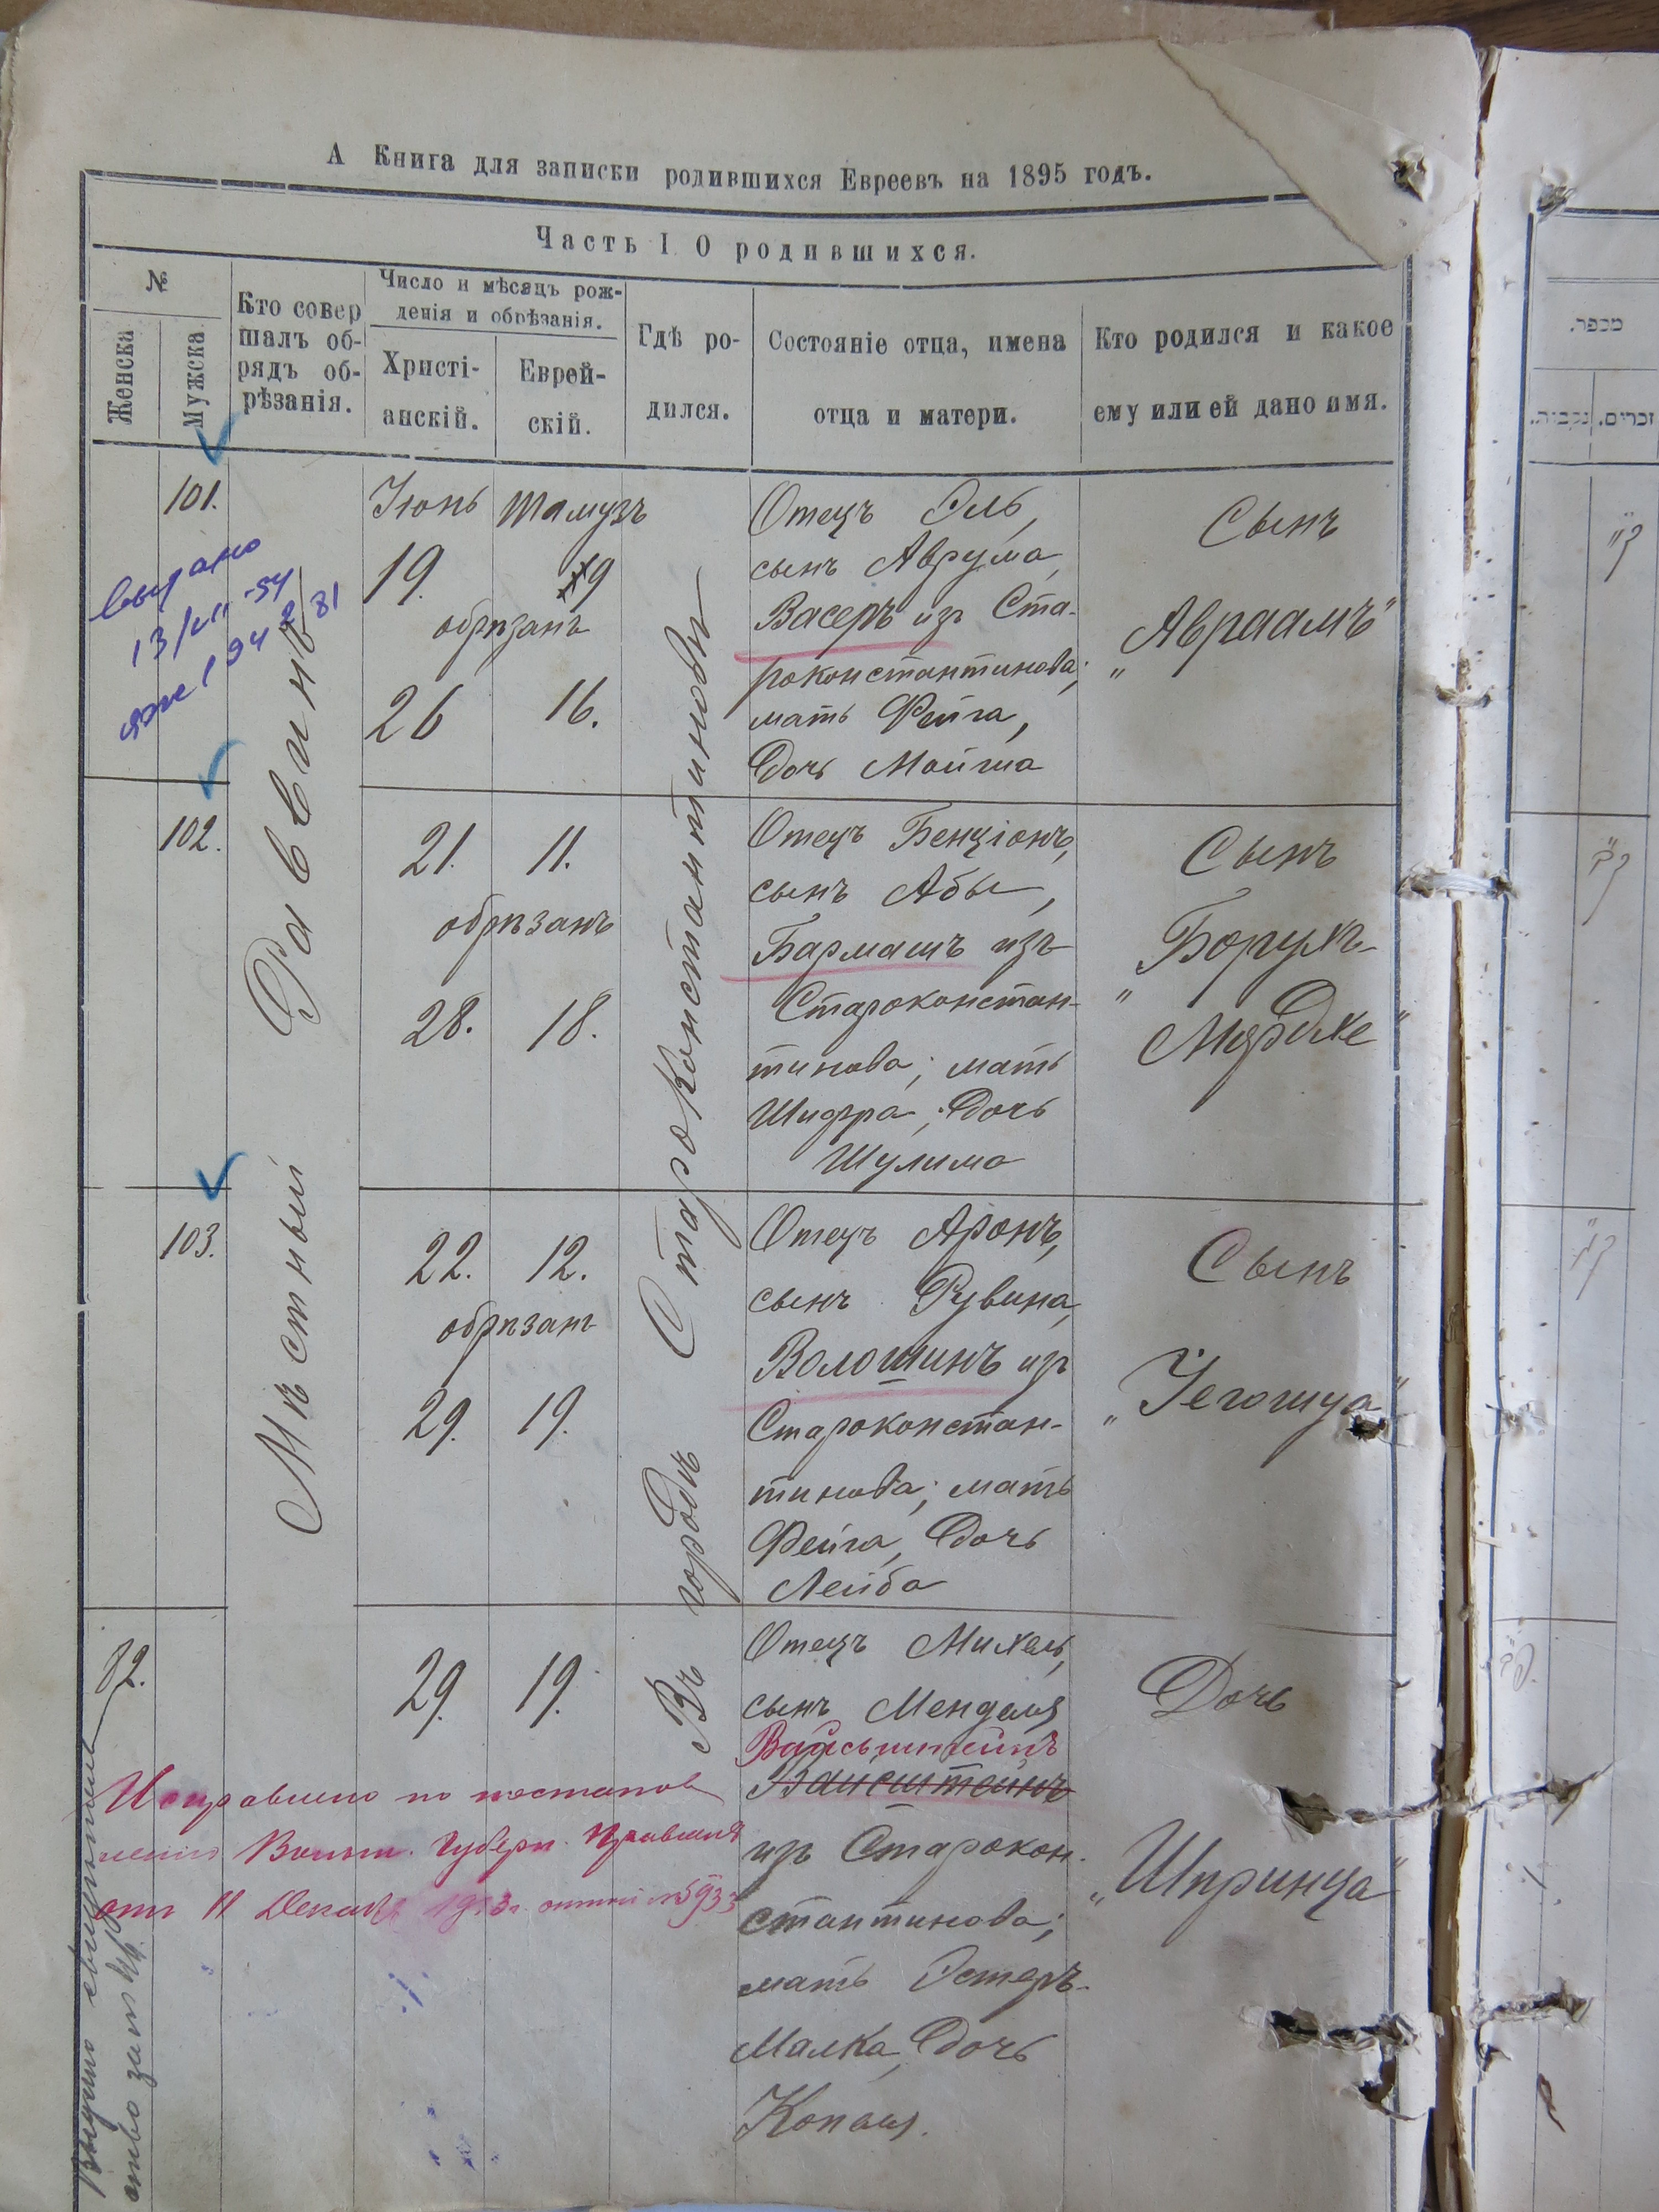 А Книга для записки родившихся Евреевъ на 1895 годъ.
Часть I О родившихся.
№
Женска
Мужска
Кто совер
шалъ об-
рядъ об-
рѣзанія.
Число и мѣсяцъ рож-
денія и обрѣзанія.
Христі-
анскій.
Еврей-
скій.
Гдѣ ро-
дился.
Состояніе отца, имена
отца и матери.
Кто родился и какое
ему или ей дано имя.
Мѣстный Раввинъ
Въ городѣ Староконстантиновѣ
101.
выдано
13/VII-54
Іюнь Тамузъ
19. 9
обрѣзанъ
26 16.
Отецъ Эль,
сынъ Аврума,
Васеръ изъ Ста-
роконстантинова;
мать Фейга,
дочь Мойша
Сынъ
„Авраамъ"
102.
21. 11.
обрѣзанъ
28. 18.
Отецъ Бенціонъ,
сынъ Абы,
Бармашъ изъ
Староконстан-
тинова; мать
Шифра, дочь
Шулима
Сынъ
„Борухъ-
Мордхе"
103.
22. 12.
обрѣзанъ
29. 19.
Отецъ Аронъ,
сынъ Рувина,
Волошинъ изъ
Староконстан-
тинова; мать
Фейга, дочь
Лейба
Сынъ
„Іегошуа"
82.
29. 19.
Отецъ Михель,
сынъ Менделя
Вайсштейнъ
изъ Старокон-
стантинова;
мать Эстеръ-
Малка, дочь
Копеля.
Дочь
„Шпринца"
Исправлено по постанов
ленію Волын. Губерн. Правленія
отъ 11 Декабр.
Выдано свидѣтель
ство за №
מספר.
זכרים. נקבות.
ק"א
ק"ב
ק"ג
פ"ב